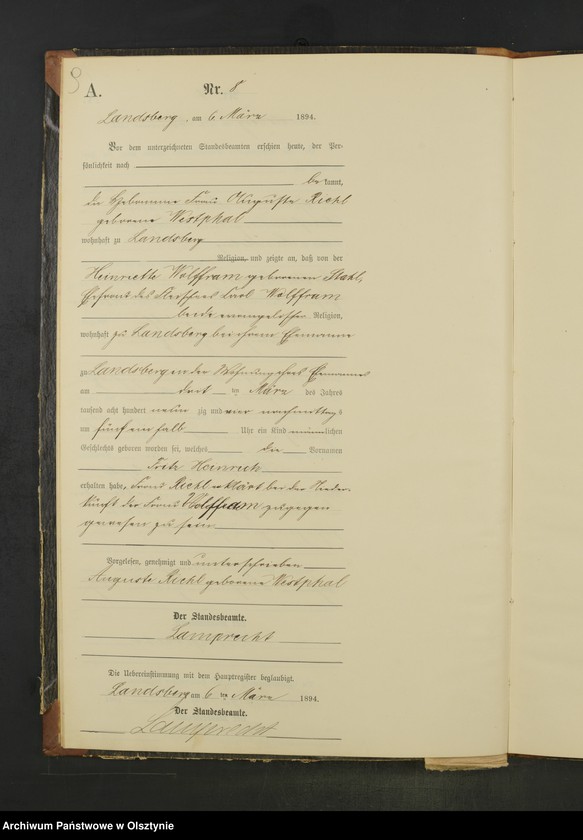 9
A. Nr. 8
Landsberg, am 6 März 1894.
Vor dem unterzeichneten Standesbeamten erschien heute, der Per-
sönlichkeit nach
bekannt,
die Hebamme Frau Auguste Riehl
geborene Westphal
wohnhaft zu Landsberg
Religion, und zeigte an, daß von der
Henriette Wolffram geborenen Stahl,
Ehefrau des Carl Wolffram
beide evangelischer Religion,
wohnhaft zu Landsberg bei ihrem Ehemanne
zu Landsberg in der Wohnung ihres Ehemannes
am drei ten März des Jahres
tausend acht hundert neun zig und vier nachmittags
um fünf ein halb Uhr ein Kind männlichen
Geschlechts geboren worden sei, welches die Vornamen
Fritz Heinrich
erhalten habe. Frau Riehl erklärt bei der Nieder-
kunft der Frau Wolffram zugegen
gewesen zu sein
Vorgelesen, genehmigt und unterschrieben
Auguste Riehl geborene Westphal
Der Standesbeamte.
Lamprecht
Die Uebereinstimmung mit dem Hauptregister beglaubigt.
Landsberg am 6 ten März 1894.
Der Standesbeamte.
Lamprecht
Archiwum Państwowe w Olsztynie